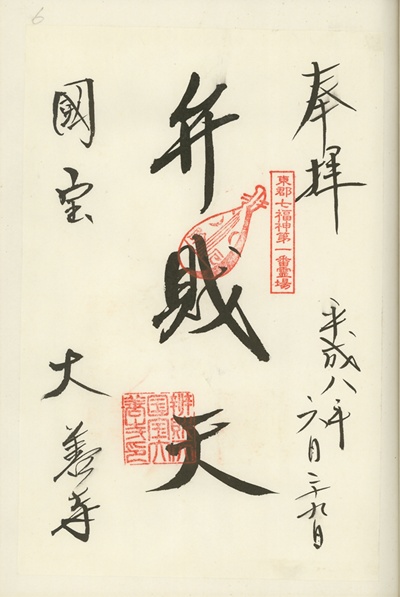 6
奉拝
東郡七福神第一番霊場
平成八年六月二十九日
弁財天
國宝
大善寺